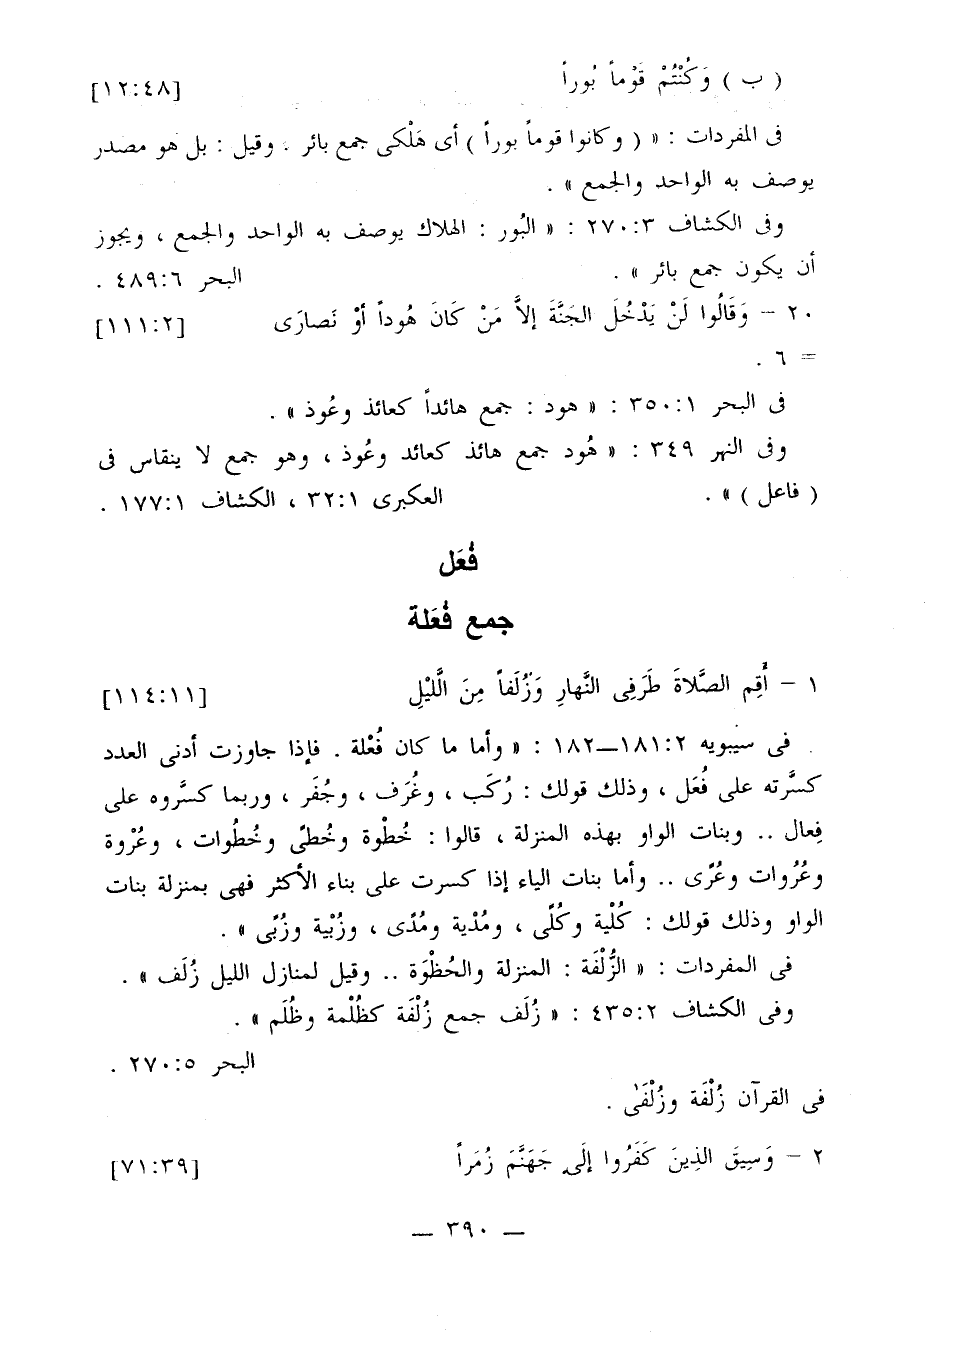 ( ب ) وَكُنْتُمْ قَوْماً بُوراً [١٢:٤٨]
فى المفردات : « ( وكانوا قوماً بوراً ) أى هَلْكى جمع بائر . وقيل : بل هو مصدر
يوصف به الواحد والجمع » .
وفى الكشاف ٢٧٠:٣ : « البُور : الهلاك يوصف به الواحد والجمع ، ويجوز
أن يكون جمع بائر » . البحر ٤٨٩:٦ .
٢٠ – وَقَالُوا لَنْ يَدْخُلَ الجَنَّةَ إلاَّ مَنْ كَانَ هُوداً أوْ نَصارَى [١١١:٢]
= ٦ .
فى البحر ٣٥٠:١ : « هود : جمع هائداً كعائذ وعُوذ » .
وفى النهر ٣٤٩ : « هُود جمع هائذ كعائد وعُوذ ، وهو جمع لا ينقاس فى
( فاعل ) » . العكبرى ٣٢:١ ، الكشاف ١٧٧:١ .
فُعَل
جمع فُعَلة
١ – أَقِم الصَّلاةَ طَرَفِى النَّهارِ وَزُلَفاً مِنَ الَّليْلِ [١١٤:١١]
فى سيبويه ١٨١:٢—١٨٢ : « وأما ما كان فُعْلة . فإذا جاوزت أدنى العدد
كسَّرته على فُعَل ، وذلك قولك : رُكَب ، وغُرَف ، وجُفَر ، وربما كسَّروه على
فِعال .. وبنات الواو بهذه المنزلة ، قالوا : خُطْوة وخُطىً وخُطُوات ، وعُرْوة
وعُرُوات وعُرًى .. وأما بنات الياء إذا كسرت على بناء الأكثر فهى بمنزلة بنات
الواو وذلك قولك : كُلْية وكُلًى ، ومُدْية ومُدًى ، وزُبْية وزُبًى » .
فى المفردات : « الزُّلْفَة : المنزلة والحُظْوَة .. وقيل لمنازل الليل زُلَف » .
وفى الكشاف ٤٣٥:٢ : « زُلَف جمع زُلْفَة كظُلْمة وظُلَم » .
البحر ٢٧٠:٥ .
فى القرآن زُلْفَة وزُلْفَىٰ .
٢ – وَسِيقَ الذِينَ كَفَرُوا إلَى جَهَنَّمَ زُمَراً [٧١:٣٩]
— ٣٩٠ —